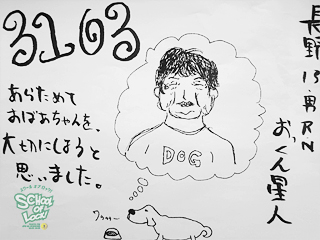 3103
長野 13・男 RN
おっくん星人
あらためて
おばあちゃんを、
大せつにしようと
思いました。
DOG
ワゥゥー
SCHOOL
OF
LOCK!